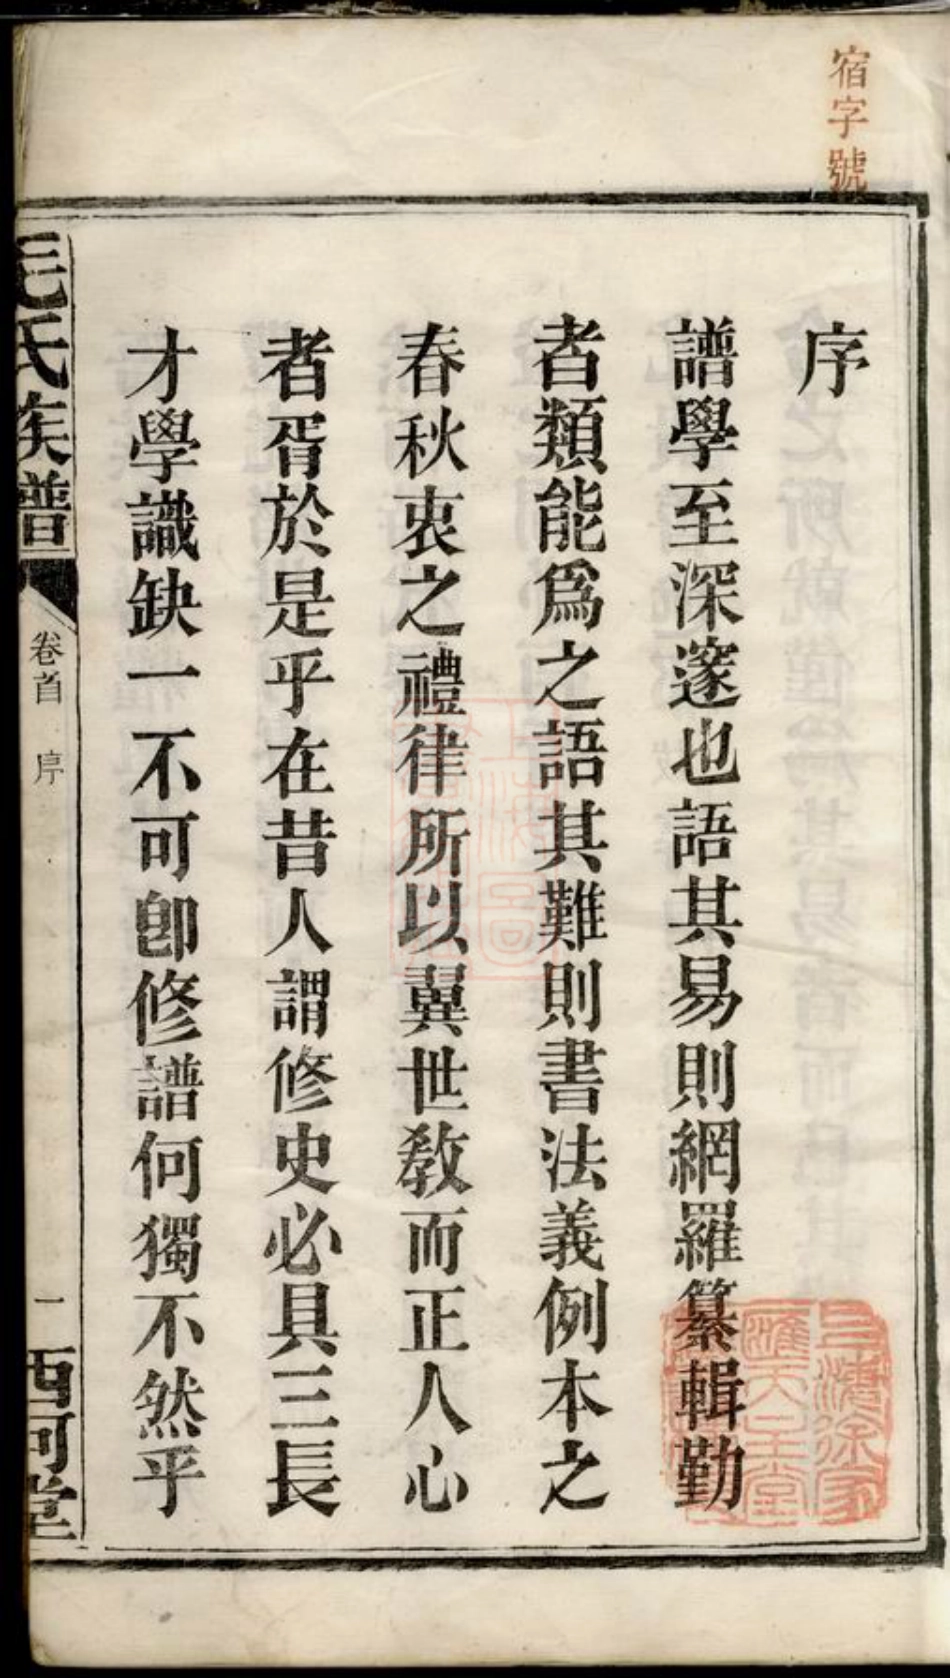 宿字號
序
譜學至深邃也語其易則網羅纂輯勤
者類能爲之語其難則書法義例本之
春秋衷之禮律所以翼世教而正人心
者胥於是乎在昔人謂修史必具三長
才學識缺一不可卽修譜何獨不然乎
毛氏族譜
卷首 序
一
西河堂